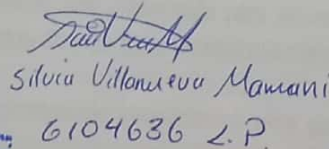 Silvia Villanueva Mamani
6104636 L.P.